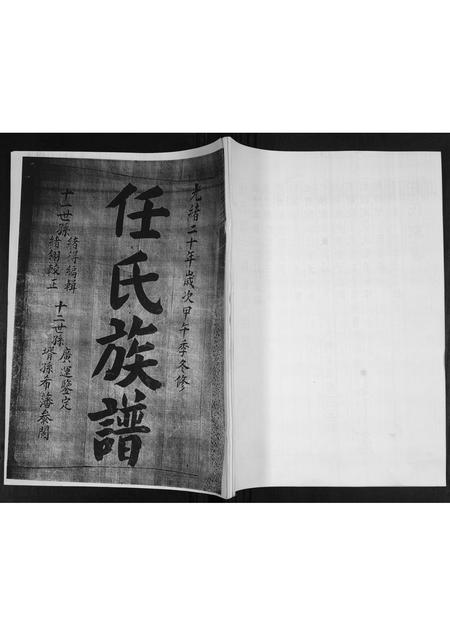 光緒二十年歲次甲午季冬修
任氏族譜
十二世孫 廣運鑒定
壻孫布藩參閱
十一世孫 緒得編輯
緒翎校正